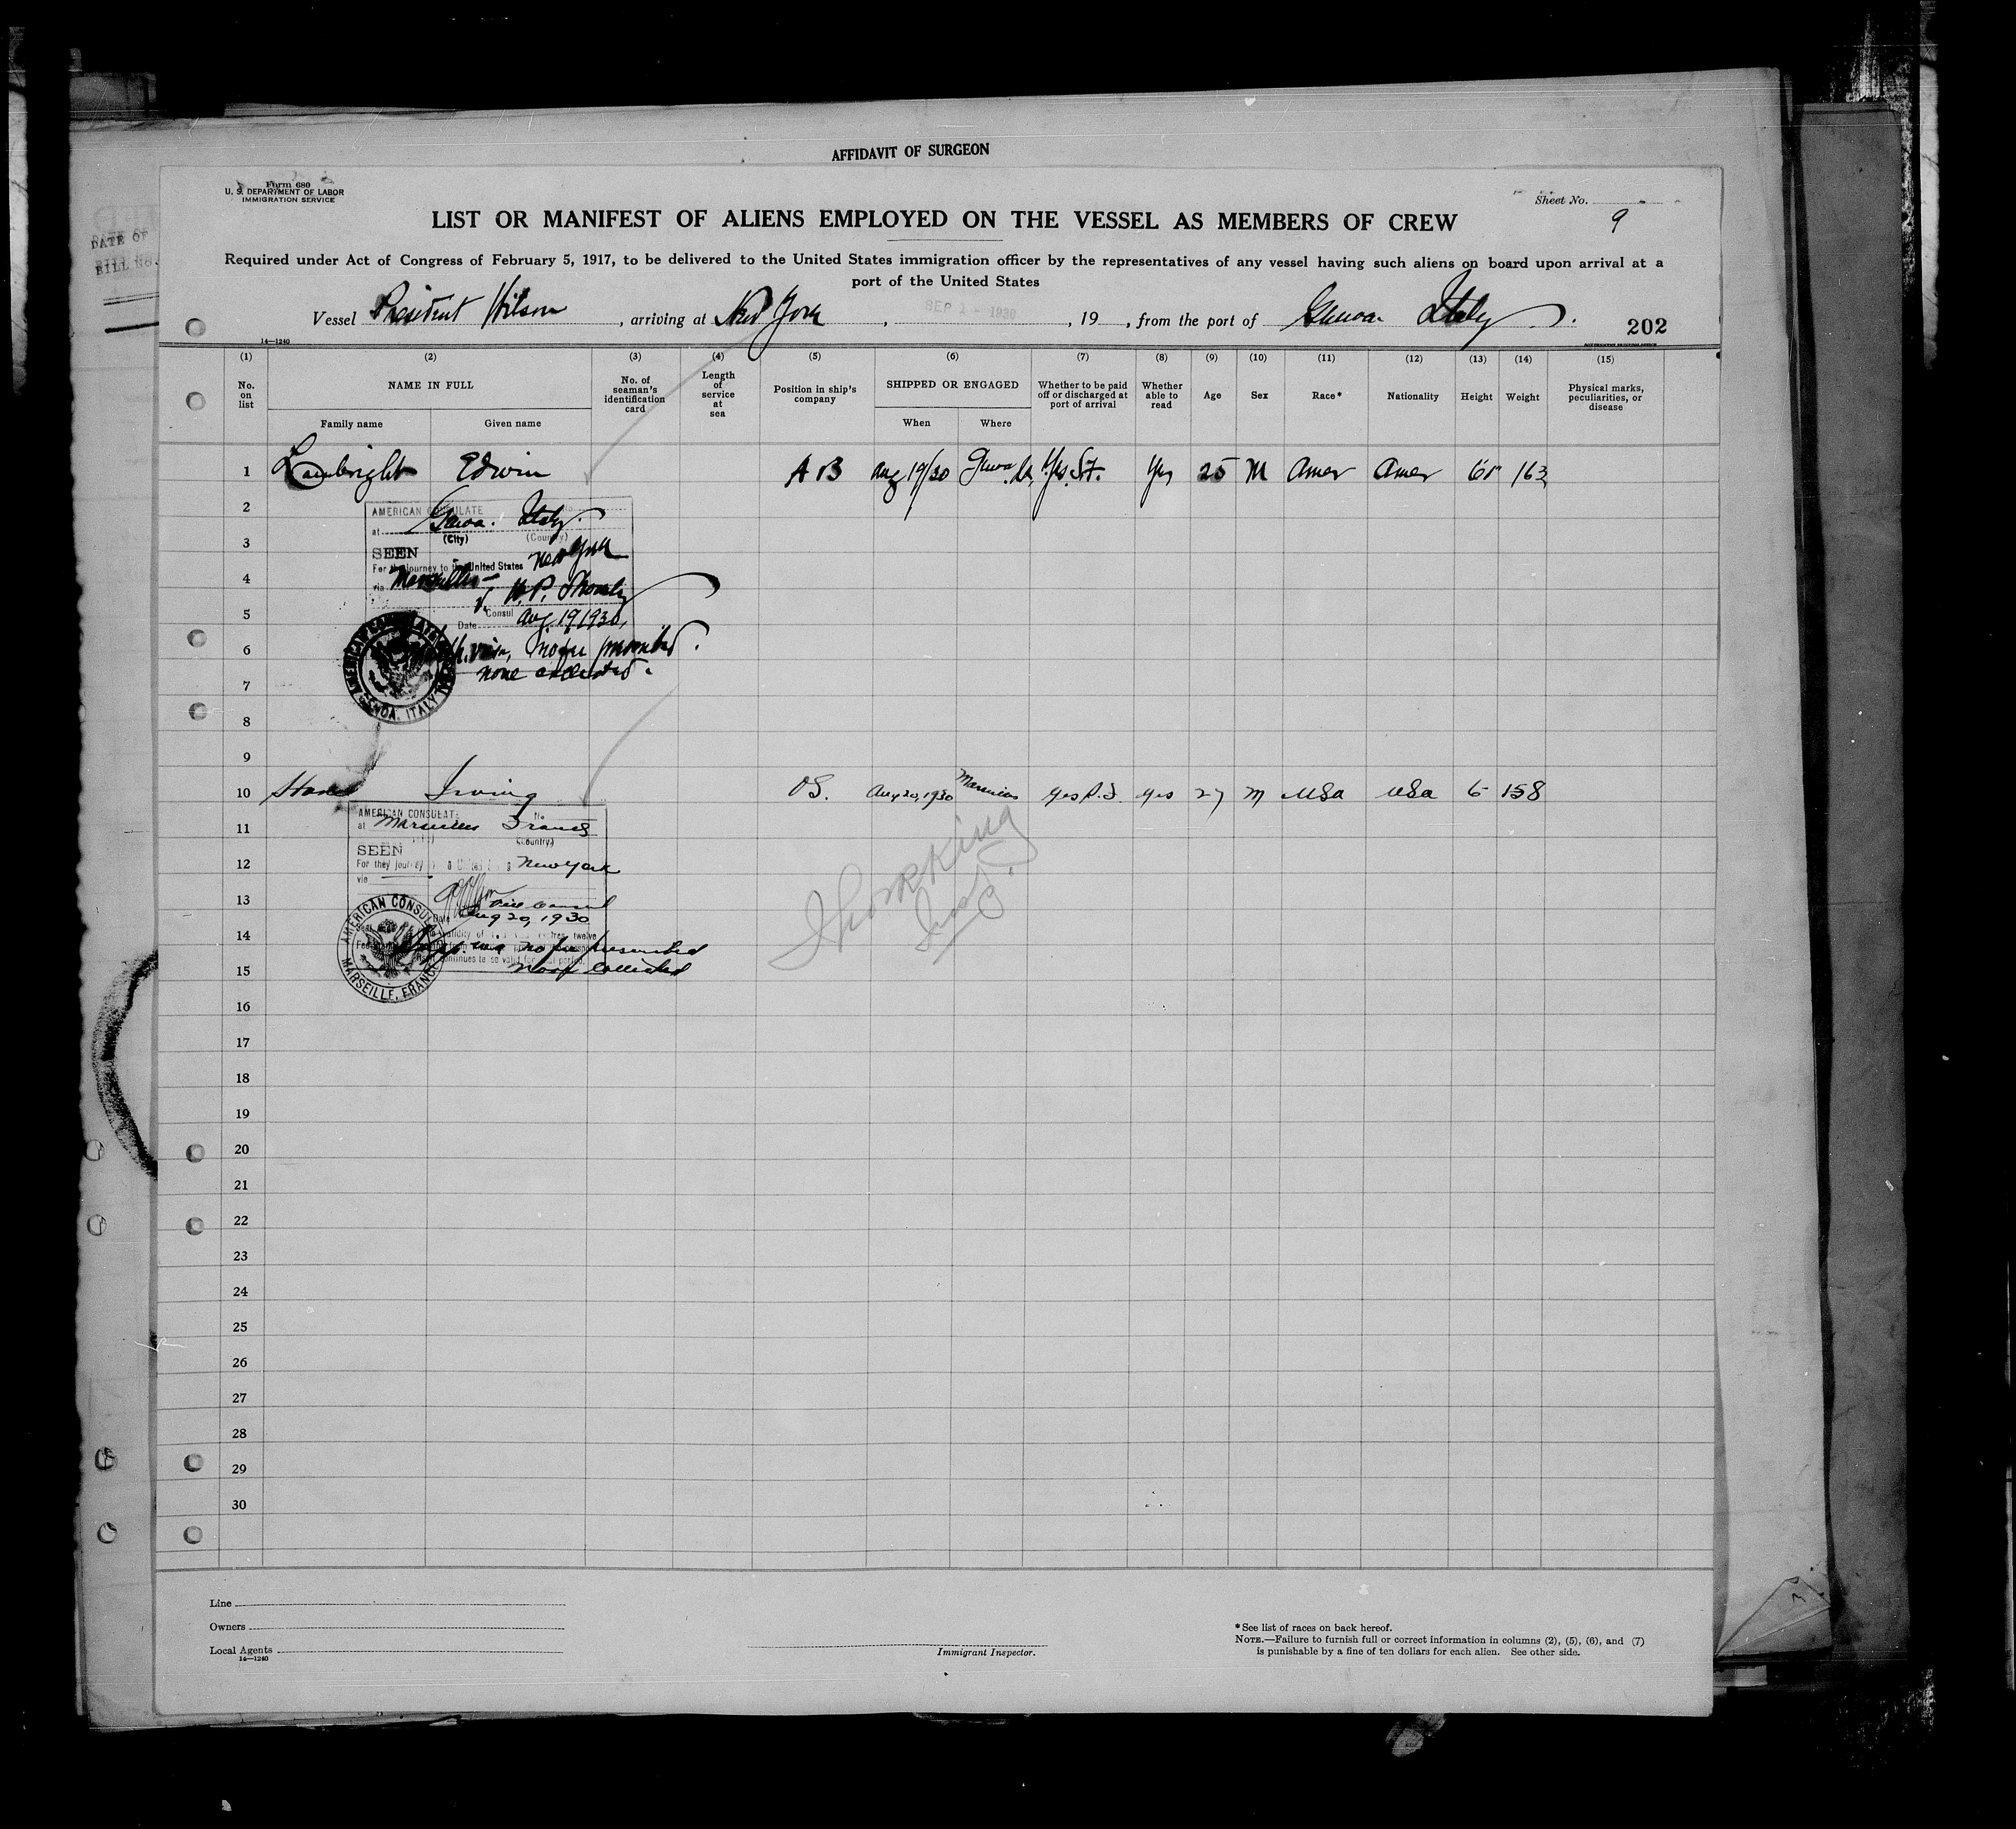 AFFIDAVIT OF SURGEON
Form 680
U. S. DEPARTMENT OF LABOR
IMMIGRATION SERVICE
Sheet No.
9
LIST OR MANIFEST OF ALIENS EMPLOYED ON THE VESSEL AS MEMBERS OF CREW
DATE OF
BILL No.
Required under Act of Congress of February 5, 1917, to be delivered to the United States immigration officer by the representatives of any vessel having such aliens on board upon arrival at a
port of the United States
Vessel President Wilson, arriving at New York, SEP 1 - 1930, 19, from the port of Genoa Italy.
202
14—1240
(1) (2) (3) (4) (5) (6) (7) (8) (9) (10) (11) (12) (13) (14) (15)
No. on list
NAME IN FULL
Family name
Given name
No. of seaman's identification card
Length of service at sea
Position in ship's company
SHIPPED OR ENGAGED
When
Where
Whether to be paid off or discharged at port of arrival
Whether able to read
Age
Sex
Race*
Nationality
Height
Weight
Physical marks, peculiarities, or disease
1 Lambright Edwin A B Aug 19/30 Genoa It. Yes S.F. Yes 25 M Amer Amer 163
2
AMERICAN CONSULATE
at Genoa. Italy.
(City) (Country)
3
SEEN
For the journey to the United States New York
4
via Marseilles
5
Consul
Date Aug 19 1930,
6
no fee prescribed.
none collected.
7
AMERICAN CONSULATE GENERAL
GENOA, ITALY
8
9
10 Irving OS. Aug 20, 1930 Marseilles yes yes 27 M USA USA 6 158
AMERICAN CONSULATE
at Marseilles France
11
(Country)
SEEN
12
For the journey New York
via
13
Vice Consul
Date Aug 20, 1930
14
no fee prescribed
15
none collected
AMERICAN CONSULATE
MARSEILLE, FRANCE
16
17
18
19
20
21
22
23
24
25
26
27
28
29
30
Line
Owners
Local Agents
14—1240
Immigrant Inspector.
*See list of races on back hereof.
NOTE.—Failure to furnish full or correct information in columns (2), (5), (6), and (7)
is punishable by a fine of ten dollars for each alien. See other side.